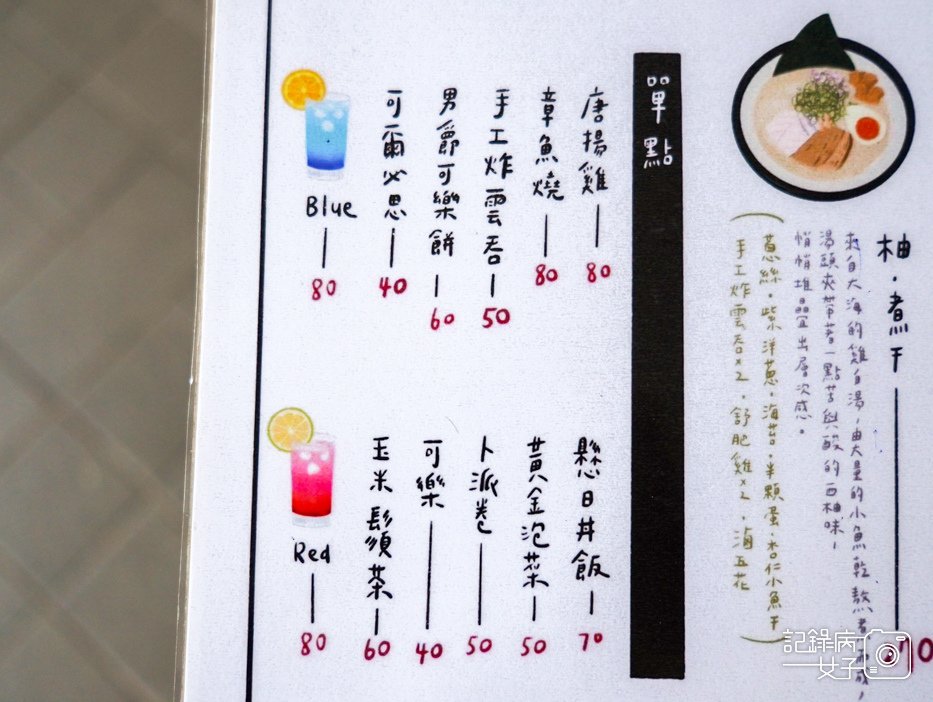 柚·煮干
來自大海的雞白湯，由大量的小魚乾熬煮而成，
湯頭夾帶著一點苦與酸的西柚味，
悄悄堆疊出層次感。
（蔥絲．紫洋蔥．海苔．半顆蛋．杏仁小魚干
手工炸雲吞x2．舒肥雞x2．滷五花）
單點
唐揚雞 80
章魚燒 80
手工炸雲吞 50
男爵可樂餅 60
可爾必思 40
Blue 80
懸日丼飯 70
黃金泡菜 50
卜派卷 50
可樂 40
玉米鬚茶 60
Red 80
記錄病
女子